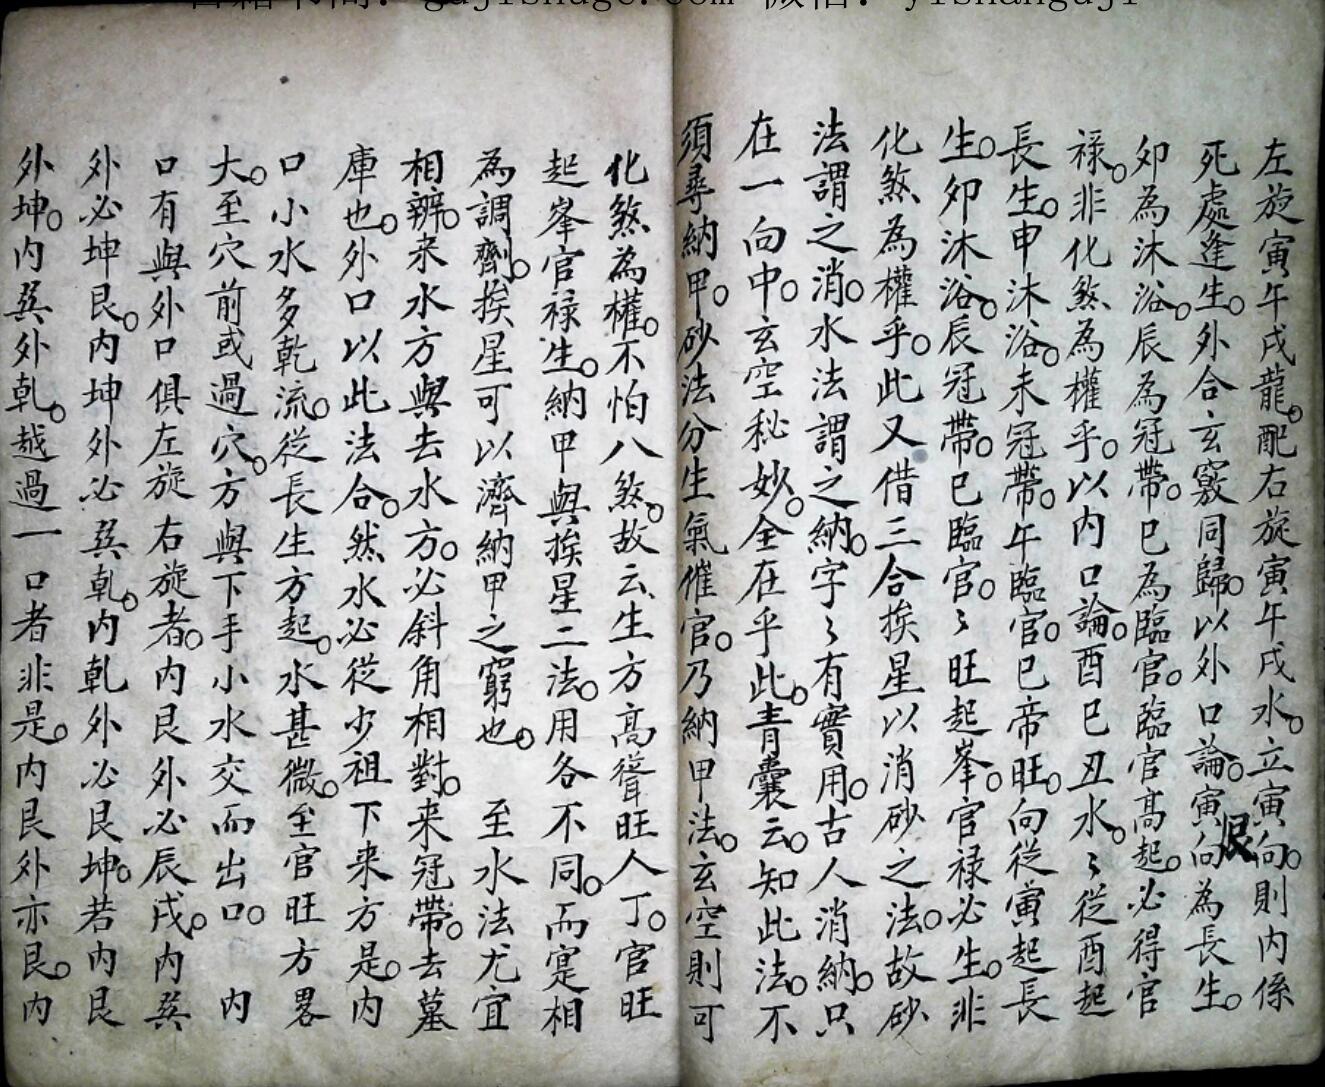 左旋寅午戌龍。配右旋寅午戌水。立寅向。則内係
死處逢生。外合玄竅同歸。以外口論。寅向為長生。
艮
卯為沐浴。辰為冠帶。巳為臨官。臨官高起。必得官
祿。非化煞為權乎。以内口論。酉巳丑水。〻從酉起
長生。申沐浴。未冠帶。午臨官。巳帝旺。向從寅起長
生。卯沐浴。辰冠帶。巳臨官。〻旺起峯。官禄必生。非
化煞為權乎。此又借三合挨星以消砂之法。故砂
法謂之消。水法謂之納。字〻有實用。古人消納。只
在一向中。玄空秘妙。全在乎此。青囊云。知此法。不
須尋納甲。砂法分生氣催官。乃納甲法。玄空則可
化煞為權。不怕八煞。故云、生方高聳旺人丁。官旺
起峯官禄生。納甲與挨星二法。用各不同。而寔相
為調劑。挨星可以濟納甲之窮也。　至水法尤宜
相辨。来水方與去水方。必斜角相對。来冠帶。去墓
庫也。外口以此法合。然水必從少祖下来方是。内
口小水多乾流。從長生方起。水甚微。至官旺方畧
大。至穴前或過穴。方與下手小水交而出口。　内
口有與外口俱左旋右旋者。内艮外必辰戌。内巽
外必坤艮。内坤外必巽乹。内乹外必艮坤。若内艮
外坤。内巽外乹。越過一口者非是。内艮外亦艮。内